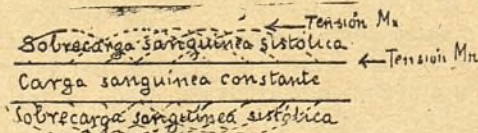 Tensión Mx
Sobrecarga sanguínea sistólica
Tensión Mn
Carga sanguínea constante
Sobrecarga sanguínea sistólica